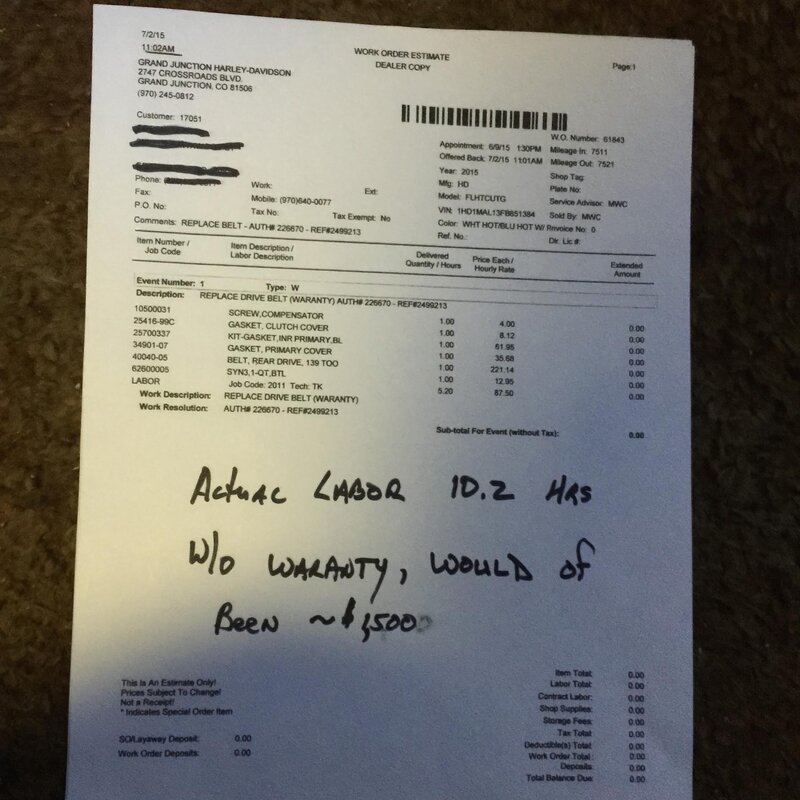 7/2/15
11:02AM
WORK ORDER ESTIMATE
DEALER COPY
Page:1
GRAND JUNCTION HARLEY-DAVIDSON
2747 CROSSROADS BLVD.
GRAND JUNCTION, CO 81506
(970) 245-0812
Customer: 17051
W.O. Number: 61843
Appointment: 6/9/15 1:30PM Mileage In: 7511
Offered Back: 7/2/15 11:01AM Mileage Out: 7521
Year: 2015 Shop Tag:
Mfg: HD Plate No:
Model: FLHTCUTG Service Advisor: MWC
VIN: 1HD1MAL13FB851384 Sold By: MWC
Color: WHT HOT/BLU HOT W/ Pinvoice No: 0
Ref. No.: Dlr. Lic #:
Phone:
Fax: Work: Ext:
P.O. No: Mobile: (970)640-0077
Tax No: Tax Exempt: No
Comments: REPLACE BELT - AUTH# 226670 - REF#2499213
Item Number / Job Code Item Description / Labor Description Delivered Quantity / Hours Price Each / Hourly Rate Extended Amount
Event Number: 1 Type: W
Description: REPLACE DRIVE BELT (WARANTY) AUTH# 226670 - REF#2499213
10500031 SCREW,COMPENSATOR 1.00 4.00 0.00
25416-99C GASKET, CLUTCH COVER 1.00 8.12 0.00
25700337 KIT-GASKET,INR PRIMARY,BL 1.00 61.95 0.00
34901-07 GASKET, PRIMARY COVER 1.00 35.68 0.00
40040-05 BELT, REAR DRIVE, 139 TOO 1.00 221.14 0.00
62600005 SYN3,1-QT,BTL 1.00 12.95 0.00
LABOR Job Code: 2011 Tech: TK 5.20 87.50 0.00
Work Description: REPLACE DRIVE BELT (WARANTY)
Work Resolution: AUTH# 226670 - REF#2499213
Sub-total For Event (without Tax): 0.00
ACTUAL LABOR 10.2 HRS
W/O WARANTY, WOULD OF
BEEN ~$1,500
This Is An Estimate Only!
Prices Subject To Change!
Not a Receipt!
* Indicates Special Order Item
SO/Layaway Deposit: 0.00
Work Order Deposits: 0.00
Item Total: 0.00
Labor Total: 0.00
Contract Labor: 0.00
Shop Supplies: 0.00
Storage Fees: 0.00
Tax Total: 0.00
Deductible(s) Total: 0.00
Work Order Total: 0.00
Deposits: 0.00
Total Balance Due: 0.00